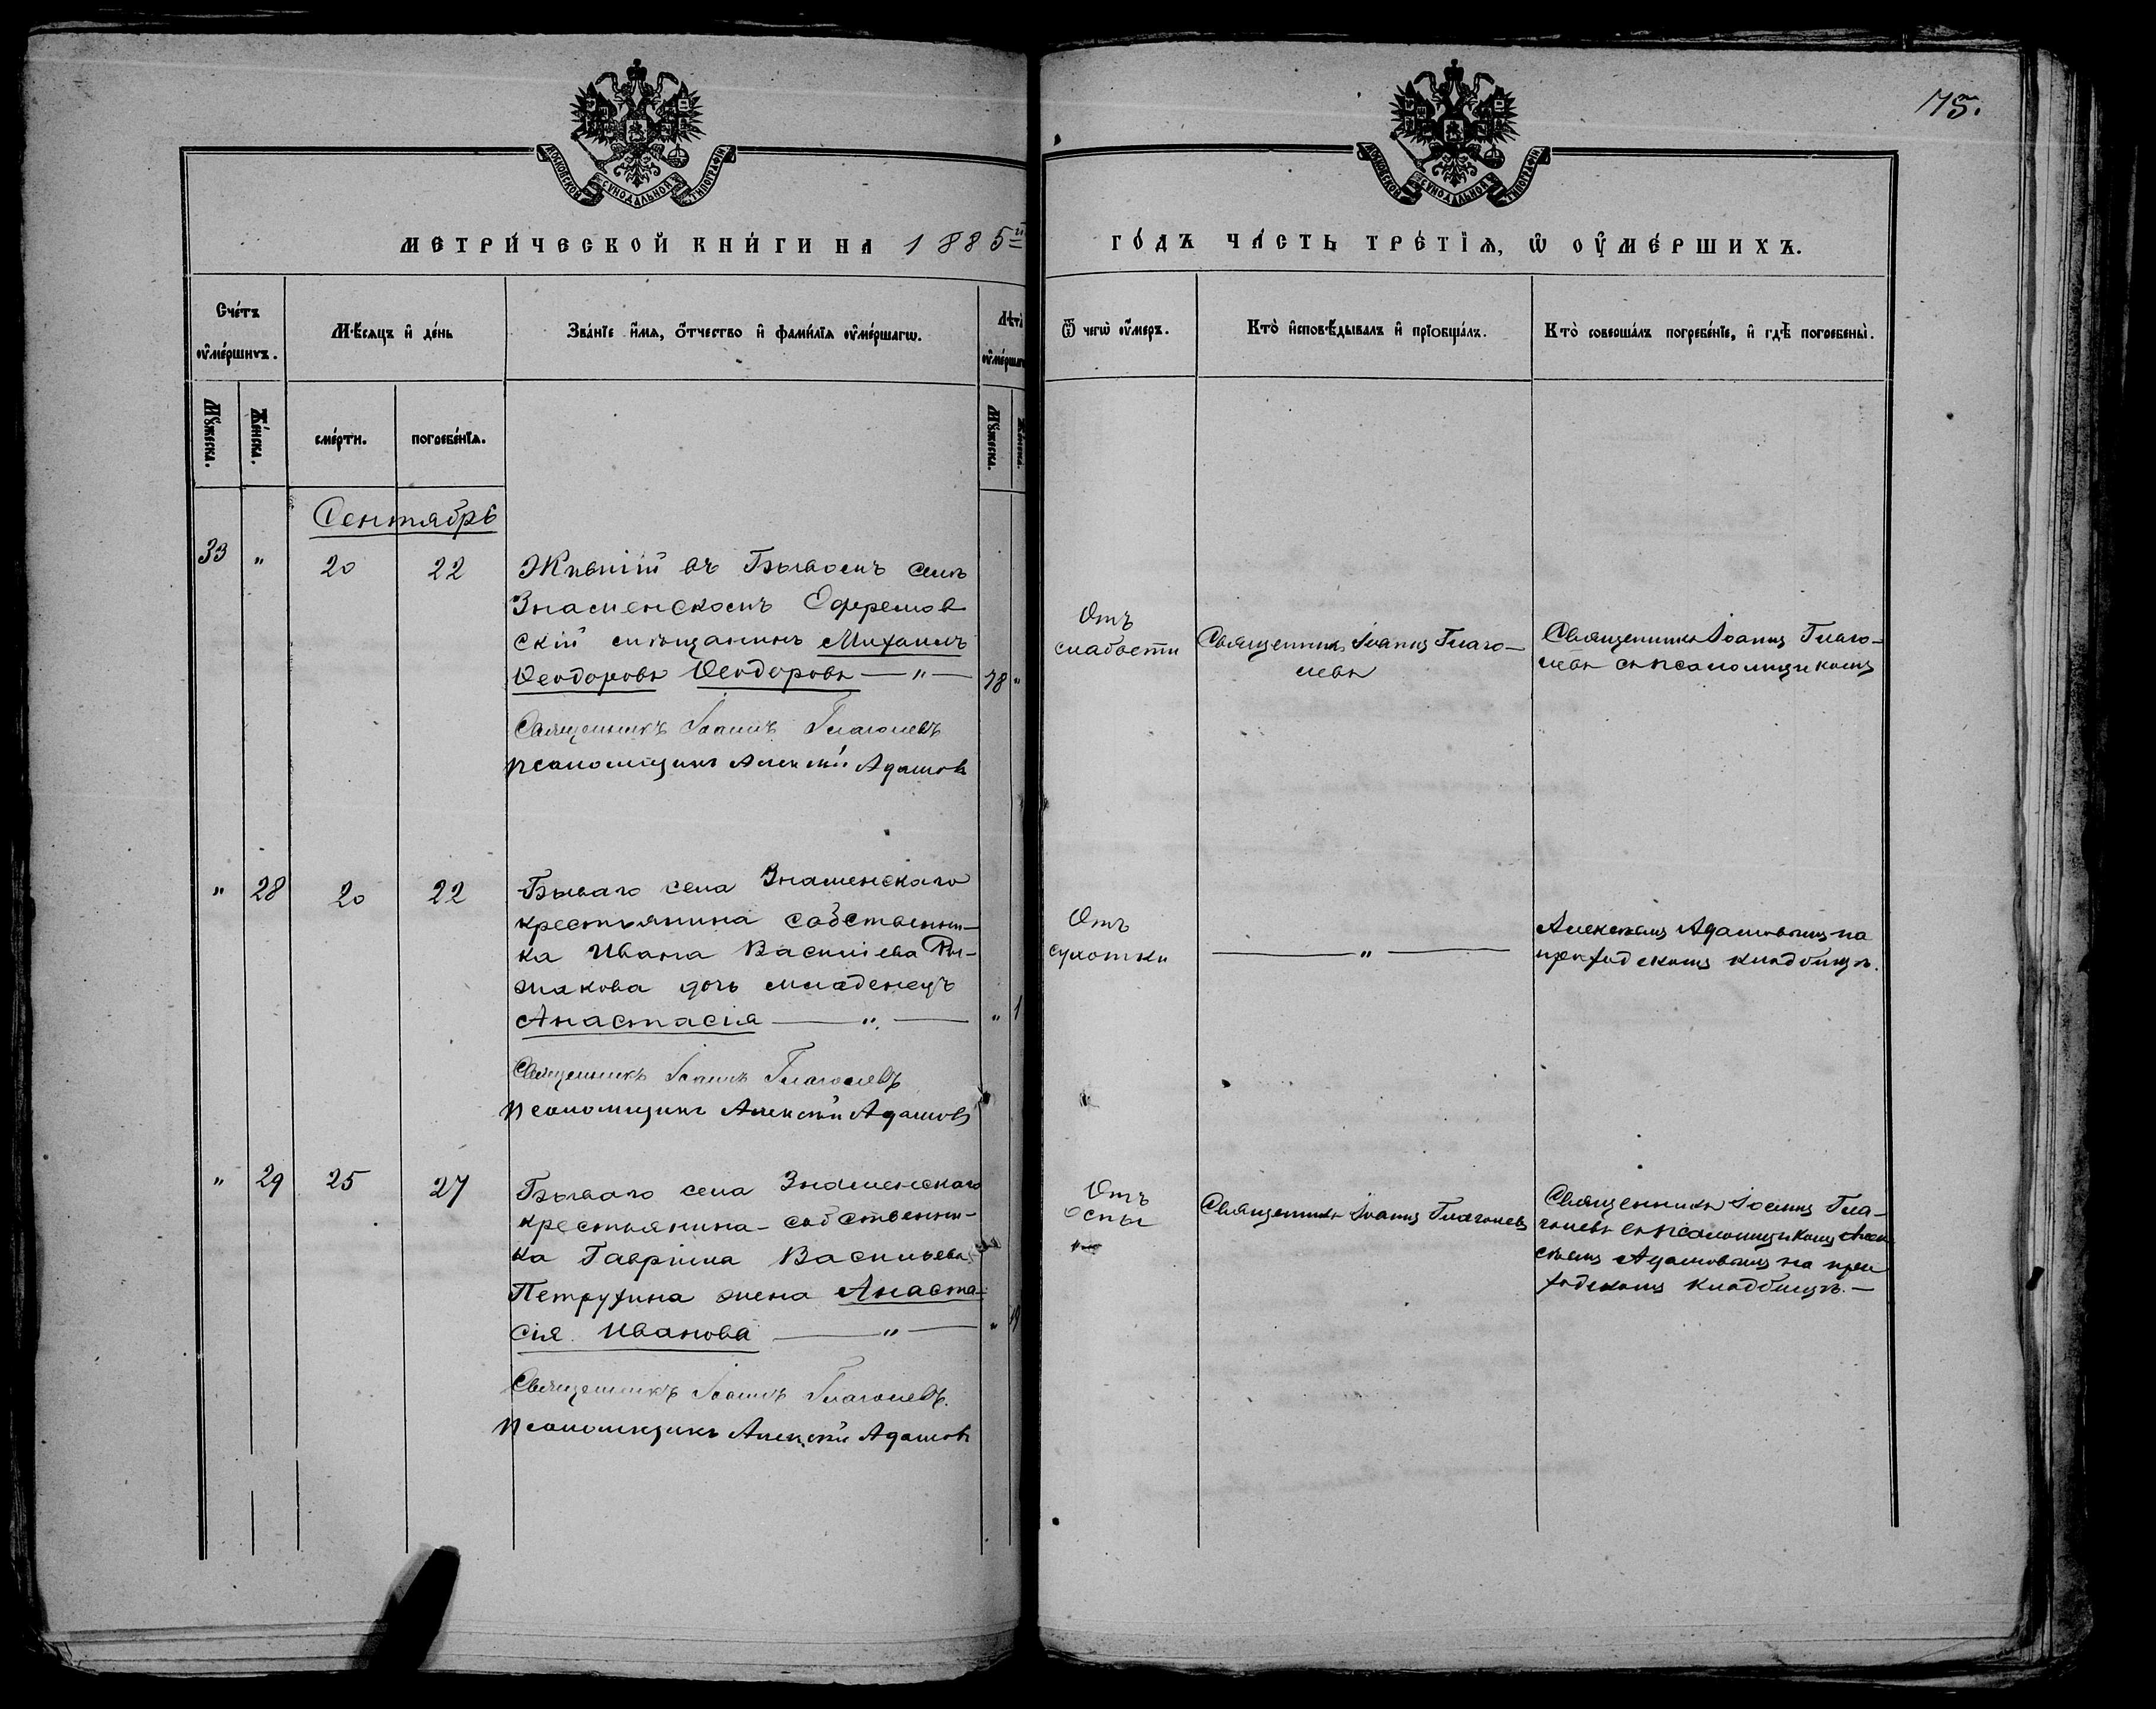 175.
МОСКОВСКОЙ СУНОДАЛЬНОЙ ТИПОГРАФІИ
МОСКОВСКОЙ СУНОДАЛЬНОЙ ТИПОГРАФІИ
МЕТРИ́ЧЕСКОЙ КНИ́ГИ НА 1885й
ГО́ДЪ ЧА́СТЬ ТРЕ́ТІѦ, Ѡ҆ ОУ҆МЕ́РШИХЪ.
Сче́тъ
оу҆ме́ршихъ.
Мѣ́сѧцъ и҆ де́нь
Зва́нїе и҆́мѧ, ѻ҆́тчество и҆ фами́лїѧ оу҆ме́ршагѡ.
Лѣ́та
оу҆ме́ршагѡ
Мꙋ́жеска.
Же́нска.
сме́рти.
погребе́нїѧ.
Мꙋ́жеска.
Же́нска.
Ѿ чегѡ̀ оу҆́меръ.
Кто̀ и҆сповѣ́дывалъ и҆ прїѡбща́лъ.
Кто̀ соверша́лъ погребе́нїе, и҆ гдѣ̀ погребены̀.
Сентябрь
33 " 20 22 Жившій въ Бывомъ селѣ
Знаменскомъ Ефремов
скій мѣщанинъ Михаилъ
Ѳеодоровъ Ѳеодоровъ — " — 78 "
Священникъ Іоаннъ Глаголевъ
Псаломщикъ Алексѣй Адамовъ
Отъ
слабости
Священникъ Іоаннъ Глаго-
левъ
Священникъ Іоаннъ Глаго-
левъ съ псаломщикомъ
" 28 20 22 Бываго села Знаменскаго
крестьянина собственни-
ка Ивана Василіева Ры-
жакова дочь младенецъ
Анастасія — " — " 1
Священникъ Іоаннъ Глаголевъ
Псаломщикъ Алексѣй Адамовъ
Отъ
сухотки
— " —
Алексѣемъ Адамовымъ на
приходскомъ кладбищѣ.
" 29 25 27 Бываго села Знаменскаго
крестьянина-собственни-
ка Гавріила Васильева
Петрухина жена Анаста-
сія Иванова — " — "
Священникъ Іоаннъ Глаголевъ.
Псаломщикъ Алексѣй Адамовъ
Отъ
оспы
Священникъ Іоаннъ Глаголевъ
Священникъ Іоаннъ Гла-
голевъ съ псаломщикомъ Алек
сѣемъ Адамовымъ на при
ходскомъ кладбищѣ. —